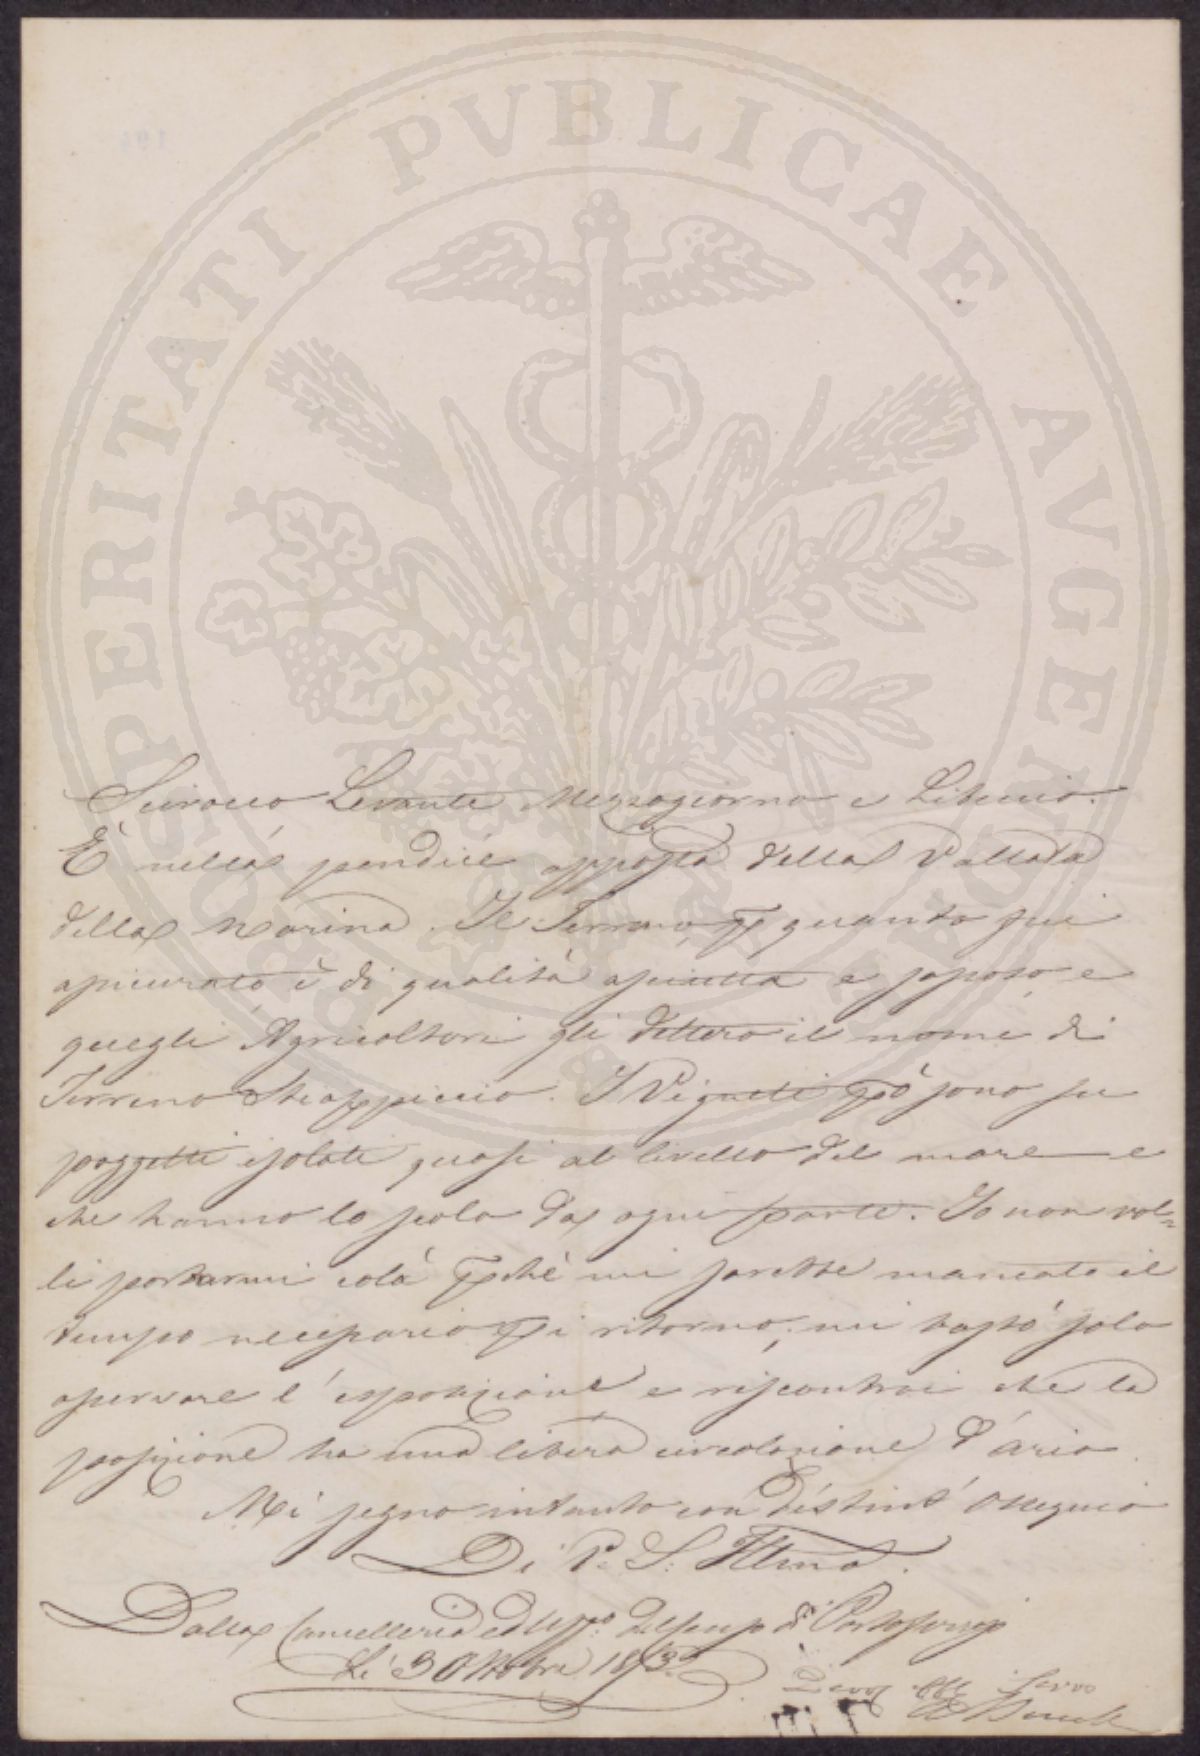 PROSPERITATI PVBLICAE AVGENDAE
Scirocco Levante Mezzogiorno e Libeccio.
È nella pendice opposta della Vallata
della Marina. Il Terreno p quanto fui
assicurato è di qualità asciutta e sassoso e
quegli Agricoltori gli dettero il nome di
Terreno Stiappiccio. I Vigneti però sono su
poggetti isolati quasi al livello del mare e
che hanno lo scolo da ogni parte. Io non vol=
li portarmi colà pchè mi sarebbe mancato il
tempo necessario p i ritorno, mi bastò solo
osservare l'esposizione e riscontrai che la
posizione ha una libera circolazione d'aria.
Mi segno intanto con distint' ossequio
Di V. S. Illma.
Dalla Cancelleria ed Uffo. del Censo di
Li 3 Ottobre 185
Devo Obb Servo